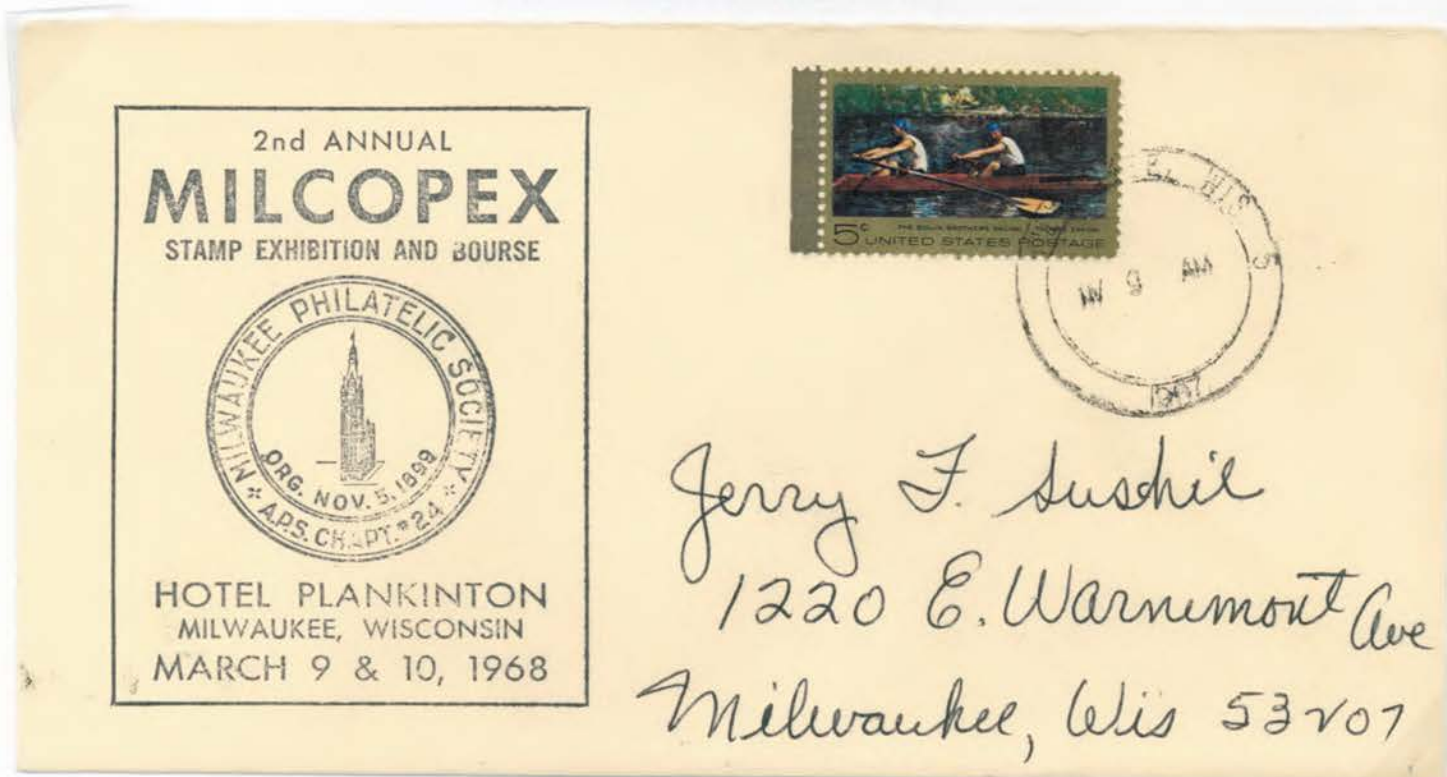 2nd ANNUAL
MILCOPEX
STAMP EXHIBITION AND BOURSE
MILWAUKEE PHILATELIC SOCIETY
ORG. NOV. 5, 1899
A.P.S. CHAPT. #24
HOTEL PLANKINTON
MILWAUKEE, WISCONSIN
MARCH 9 & 10, 1968
5c
UNITED STATES POSTAGE
WIS 5
9 AM
Jerry F. Suschil
1220 E. Warnimont Ave
Milwaukee, Wis 53207